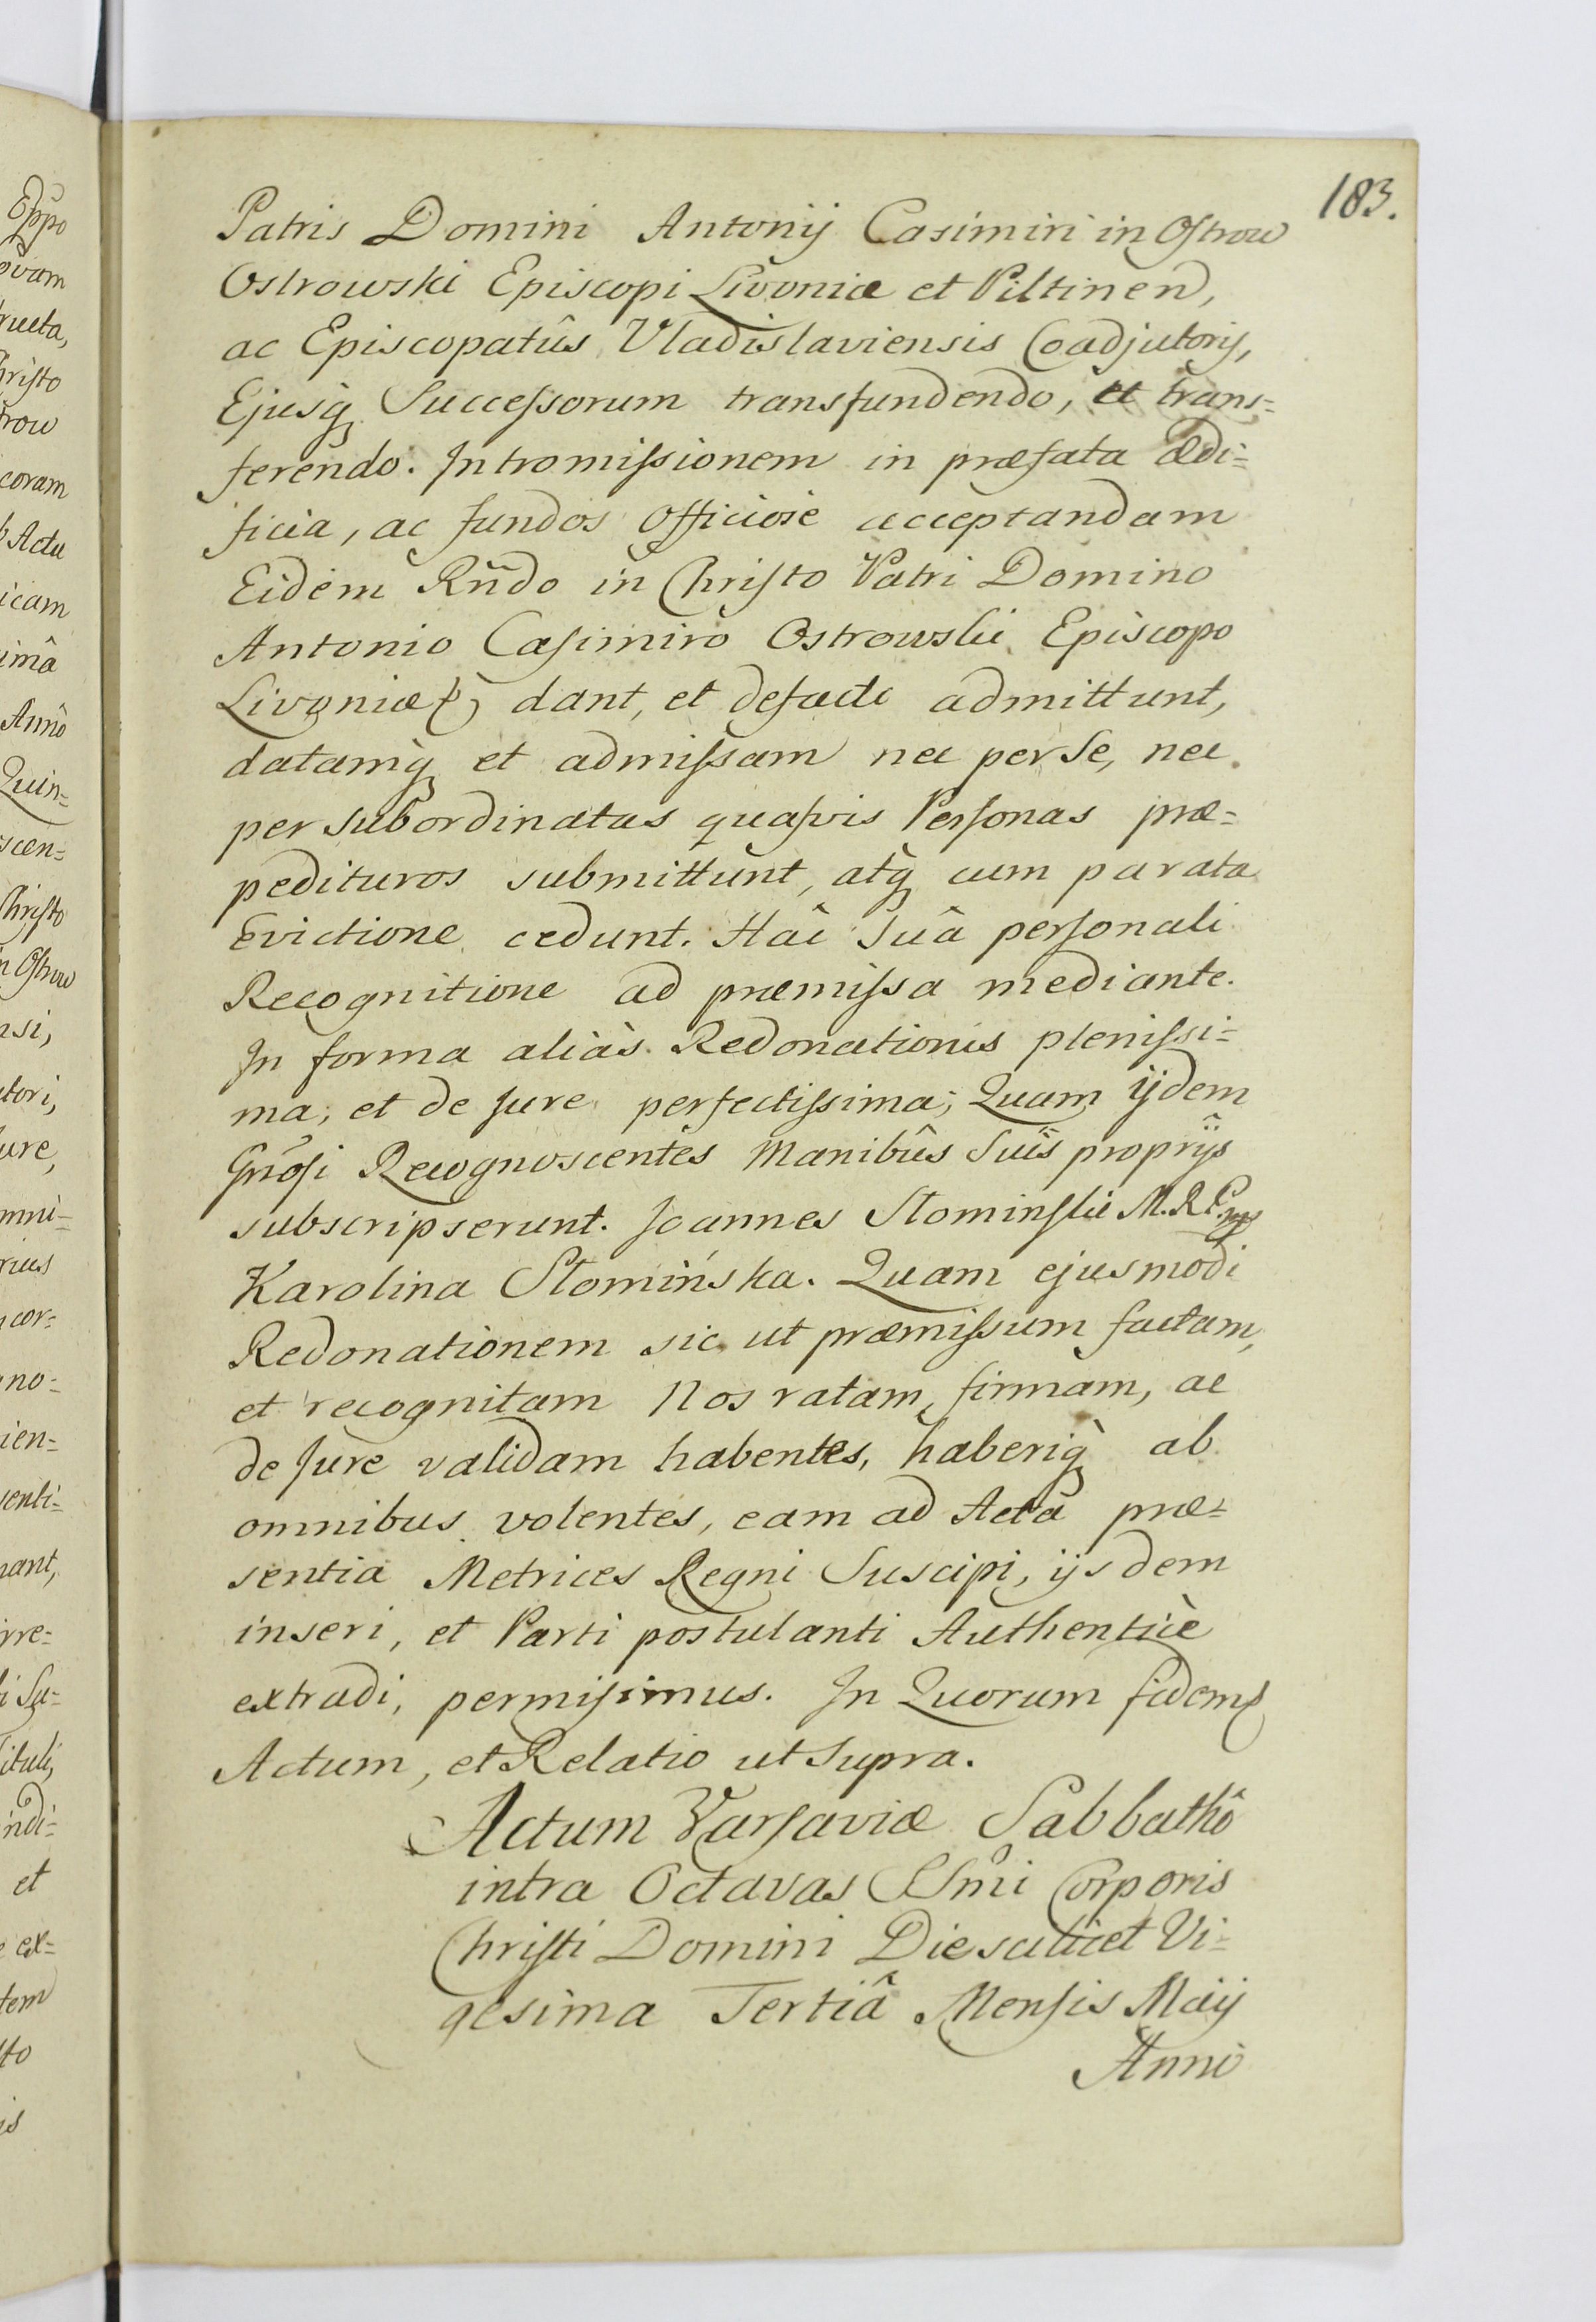 183.
Patris Domini Antonij Casimiri in Ostrow
Ostrowski Episcopi Livoniæ et Piltinen,
ac Episcopatûs Vladislaviensis Coadjutoris,
Ejusq Successorum transfundendo, et trans=
ferendo. Intromissionem in præfata Ædi=
ficia, ac fundos officiose acceptandam
Eidem Rñdo in Christo Patri Domino
Antonio Casimiro Ostrowski Episcopo
Livoniæ dant, et defacto admittunt,
datamq et admissam nec per Se, nec
per subordinatas quasvis Personas præ=
pedituros submittunt, atq cum parata
Evictione cedunt. Hac Suâ personali
Recognitione ad præmissa mediante.
In forma aliàs Redonationis plenissi=
ma, et de Jure perfectissima, Quam ijdem
Gnosi Recognoscentes Manibûs Suis proprijs
subscripserunt. Joannes Słominski M.R.P. mp
Karolina Słomińska. Quam ejusmodi
Redonationem sic ut præmissum factam,
et recognitam Nos ratam, firmam, ac
de Jure validam habentes, haberiq ab
omnibus volentes, eam ad Acta præ=
sentia Metrices Regni Suscipi, ijsdem
inseri, et Parti postulanti Authenticè
extradi, permisimus. In Quorum fidem
Actum, et Relatio ut Supra.
Actum Varsaviæ Sabbathô
intra Octavas SSmi Corporis
Christi Domini Die scilicet Vi=
gesima Tertiâ Mensis Maij
Anno
Eppo
ovam
ructa,
hristo
row
coram
Actu
icam
imâ
Annô
Quin=
scen=
Christo
in Ostrow
nsi,
tori,
Jure,
mni=
rius
cor=
no=
ien=
senti=
nant,
rre=
Su=
ituli,
ndi=
et
ex=
tem
to
is